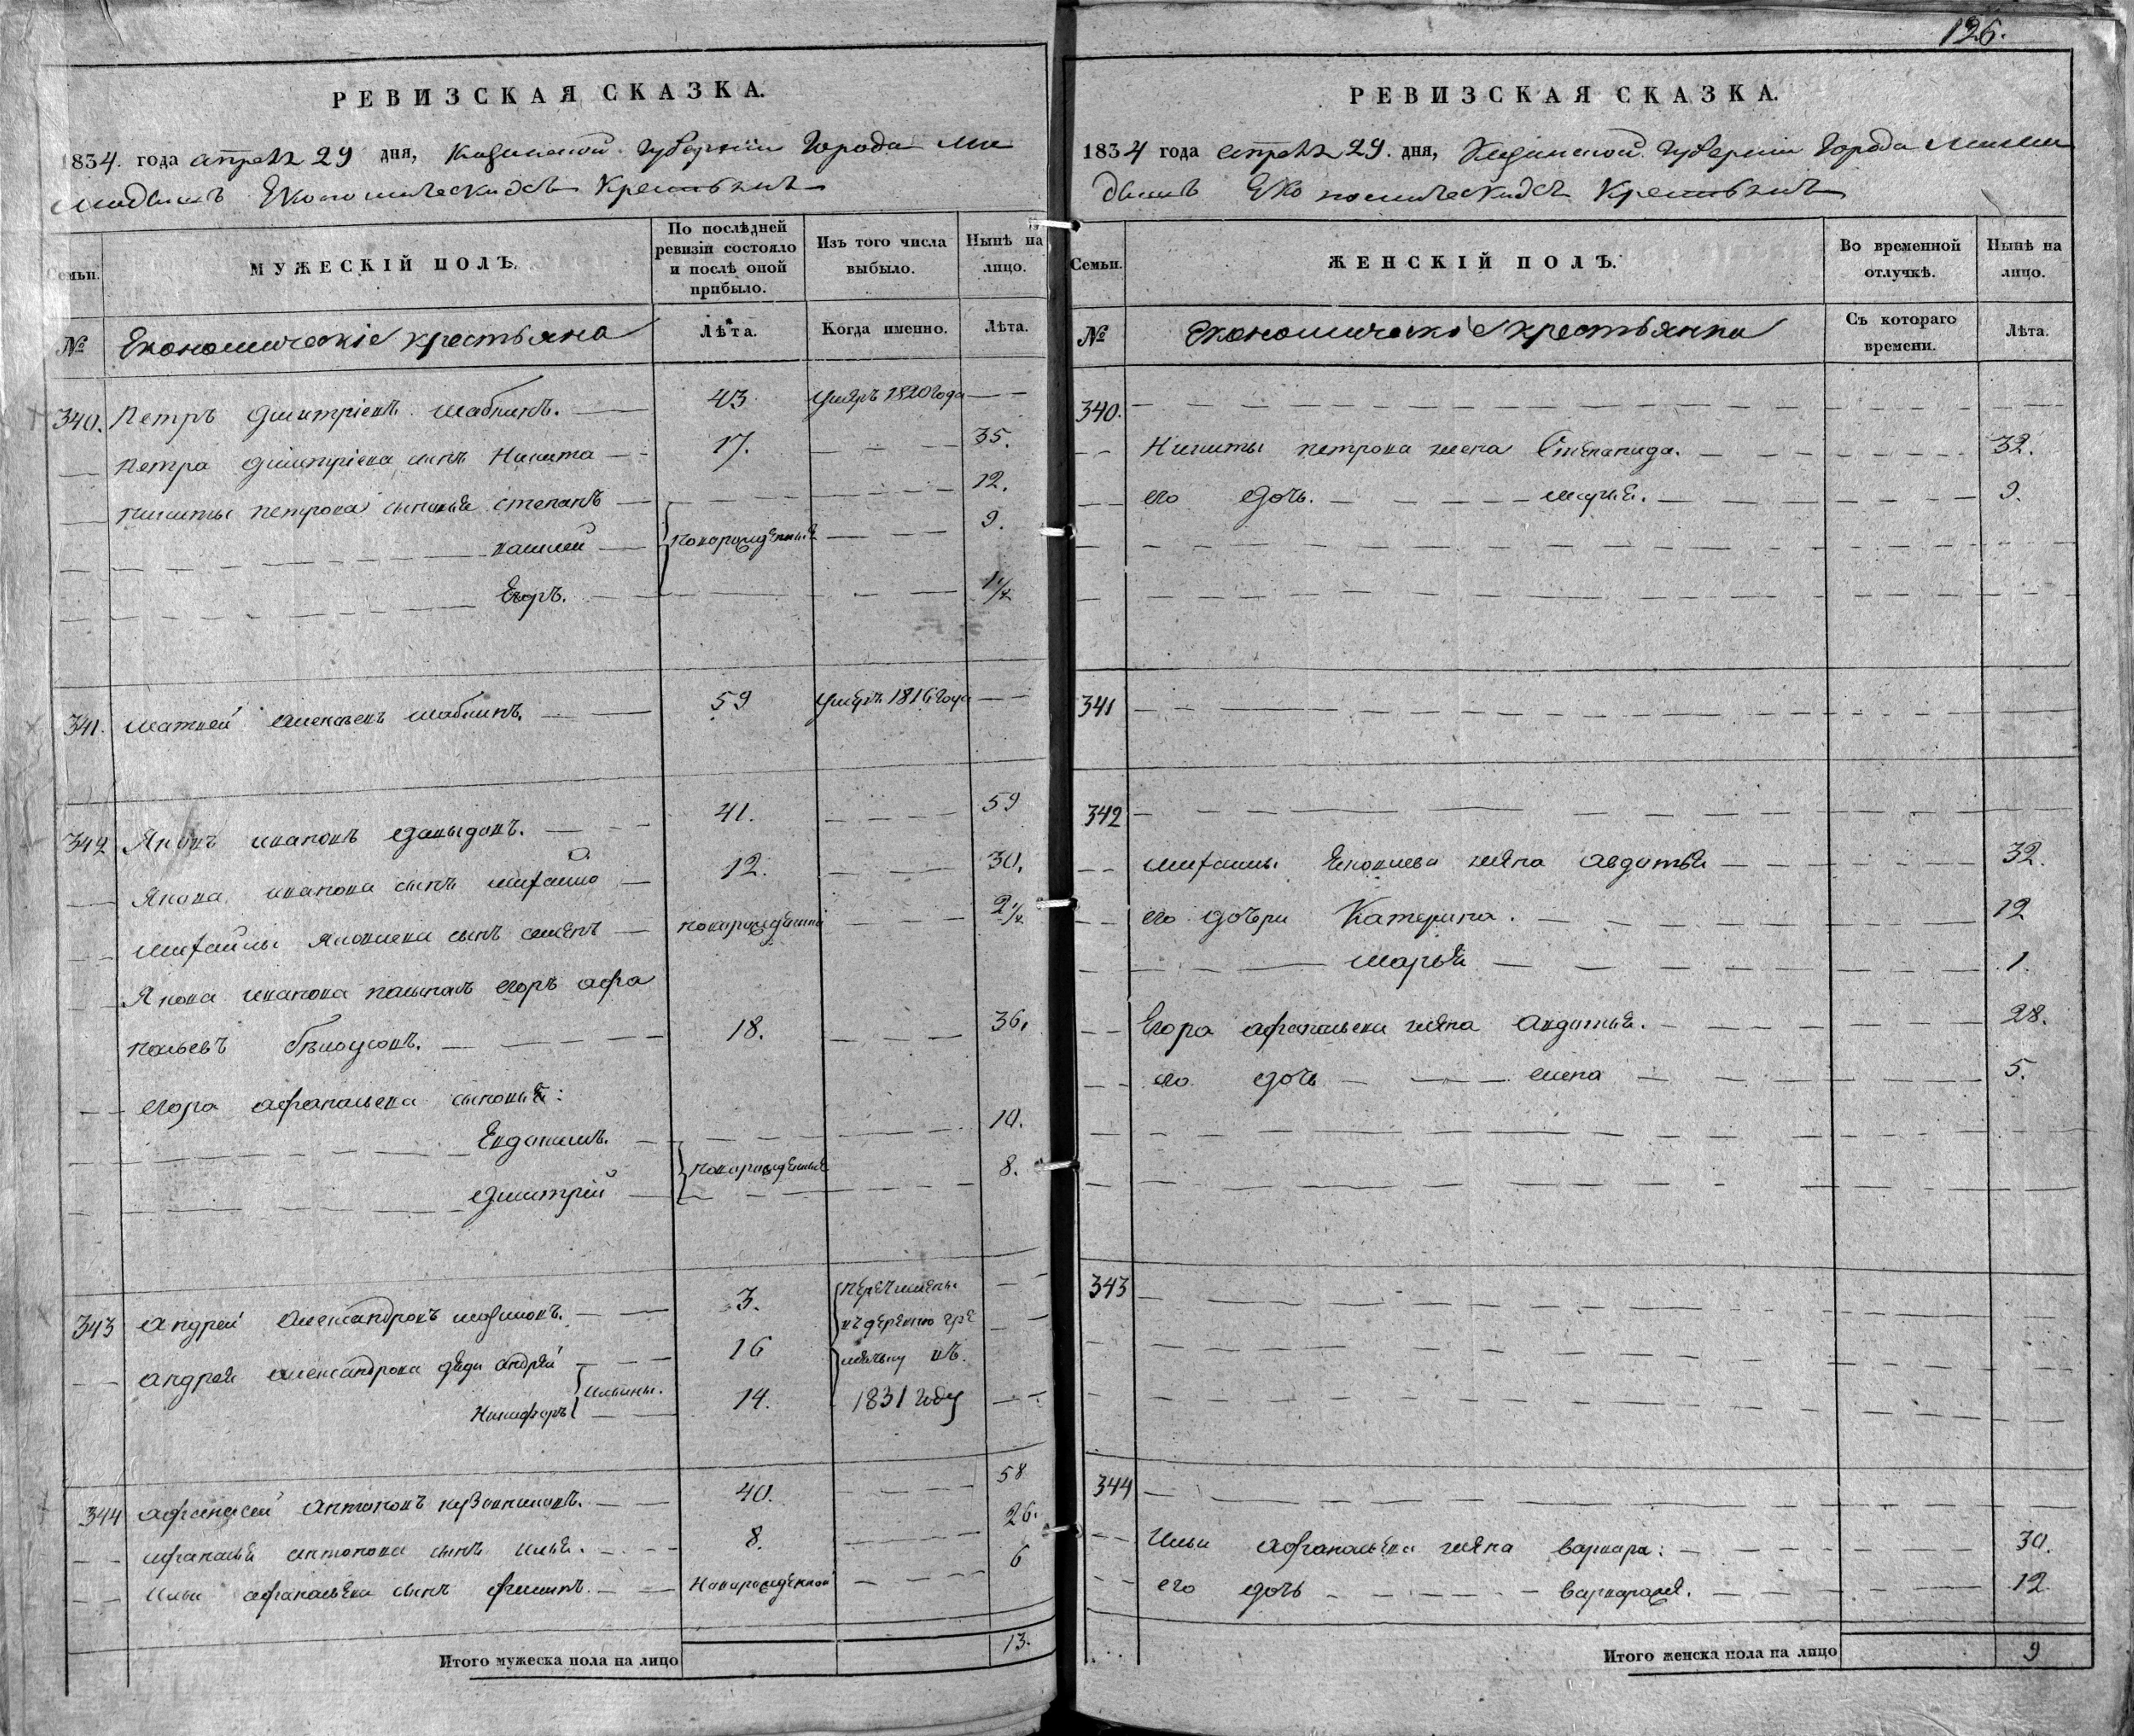 РЕВИЗСКАЯ СКАЗКА.
1834. года апреля 29 дня, Казанской Губернии Города Ма
мадыша Економическихъ Крестьянъ
Семьи.
МУЖЕСКІЙ ПОЛЪ.
По послѣдней ревизіи состояло и послѣ оной прибыло.
Изъ того числа выбыло.
Нынѣ на лицо.
№
Економическіе крестьяна
Лѣта.
Когда именно.
Лѣта.
340. Петръ Дмитріевъ Шабинъ. 43 умеръ 1820 года
Петра Дмитріева сынъ Никита 17. 35.
Никиты Петрова сыновья Степанъ 12.
новорожденные 9.
Егоръ. 1/4
341. Матвей Шабинъ. 59 умеръ 1816 года
342 Яковъ Ивановъ Давыдовъ. 41. 59
Якова Иванова сынъ Михайло 12. 30.
Михайлы Яковлева сынъ Семенъ новорожденный 2 1/4
Якова Иванова Егоръ Афа
насьевъ Белоусовъ. 18. 36.
Егора Афанасьева сыновья:
Евдокимъ. 10.
новорожденные
Дмитрий 8.
343 Андрей Александровъ 3. перечислены
въ деревню Гре
Андрея Александрова дяди Андрей 16 въ
Никифоръ Ильины. 14. 1831 году
344 Афанасей Антоновъ 40. 58
Афанасья Антонова сынъ Илья. 8. 26.
Ильи Афанасьева сынъ Филипъ. Новорожденной 6
Итого мужеска пола на лицо 13.
126.
РЕВИЗСКАЯ СКАЗКА.
1834 года апреля 29. дня, Казанской Губернии Города Мама
дыша Економическихъ Крестьянъ
Семьи.
ЖЕНСКІЙ ПОЛЪ.
Во временной отлучкѣ.
Нынѣ на лицо.
№
Економическіе крестьянки
Съ котораго времени.
Лѣта.
340.
Никиты Петрова жена Степанида. 32.
его дочь. 9.
341
342
Михайлы Яковлева жена Авдотья 32.
его дочери Катерина. 12
Марья 1.
Егора Афанасьева жена Авдотья. 28.
его дочь 5.
343
344
Ильи Афанасьева жена Варвара: 30.
его дочь Варвара 12
Итого женска пола на лицо 9